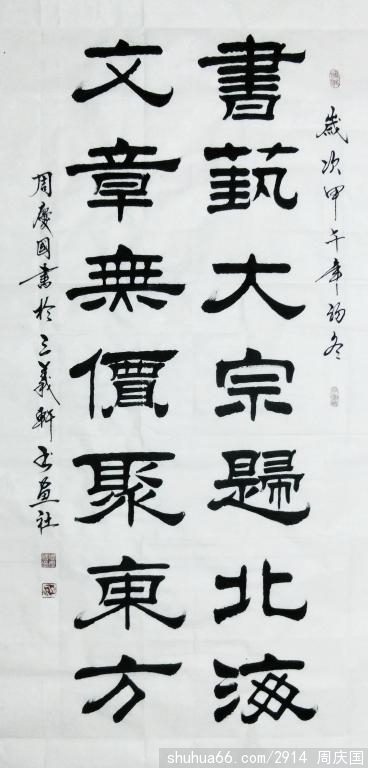 歲次甲午年初冬
書藝大宗歸北海
文章無價聚東方
周慶國書於三義軒书画社
shuhua66.com/2914 周庆国